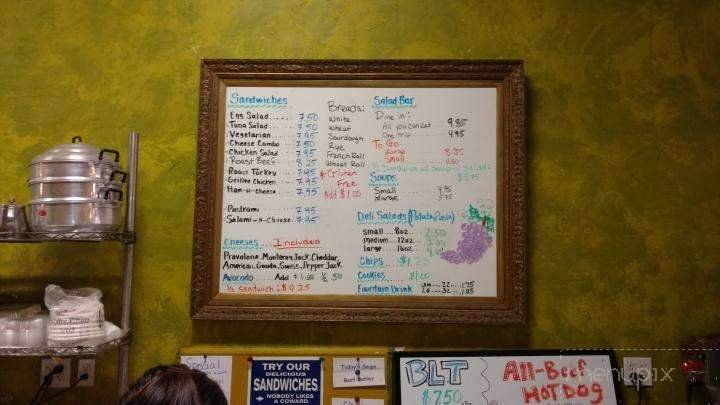 Sandwiches
Egg Salad ..... 7.50
Tuna Salad ..... 7.50
Vegetarian ..... 7.95
Cheese Combo ..... 7.50
Chicken Salad .... 7.95
Roast Beef ..... 8.25
Roast Turkey ..... 7.95
Grilled Chicken .... 7.95
Ham-n-cheese ... 7.95
Pastrami 7.95
Salami-n-Cheese .. 7.95
Cheeses .... Included
Provolone, Monterey Jack, Cheddar,
American, Gouda, Swiss, Pepper Jack
Avocado Add $1.00 1/2 .50
1/2 sandwich: $4.25
Breads:
White
Wheat
Sourdough
Rye
French Roll
Wheat Roll
* Gluten
Free
Add $1.00
Salad Bar
Dine in:
All you can eat 9.85
One trip 4.95
To Go
Large 8.85
Small
Soups
Small 4.95
Large 5.75
Deli Salads
small 8oz ... 2.50
medium 12oz
large 16oz
Chips ... $1.25
Cookies $1.00
Fountain Drink
Special
TRY OUR
DELICIOUS
SANDWICHES
NOBODY LIKES
A COWARD.
Today's Soup
Beef Barley
BLT
$7.50
All-Beef
HOTDOG
menupix